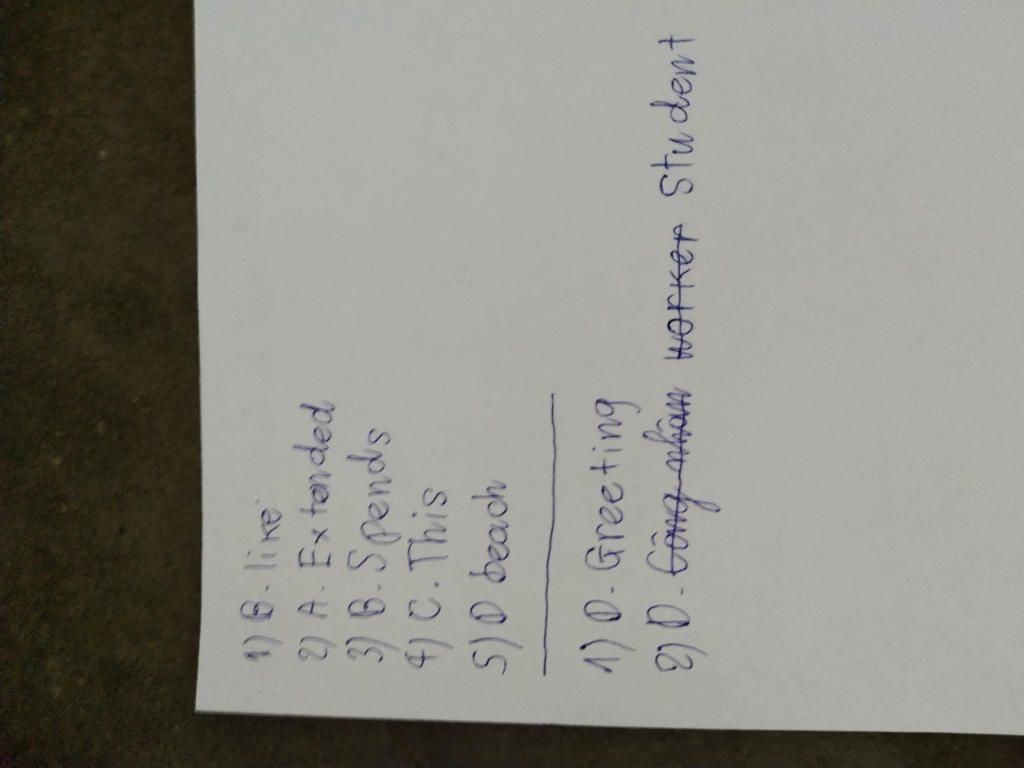 1) B. like
2) A. Extended
3) B. Spends
4) C. This
5) D beach
1) D. Greeting
2) D. Công nhân worker Student